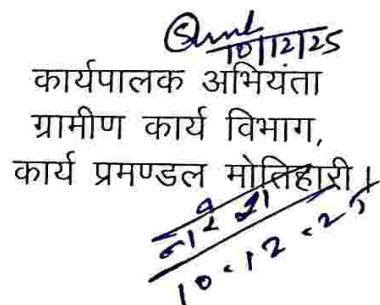 10/12/25
कार्यपालक अभियंता
ग्रामीण कार्य विभाग,
कार्य प्रमण्डल मोतिहारी।
10.12.25